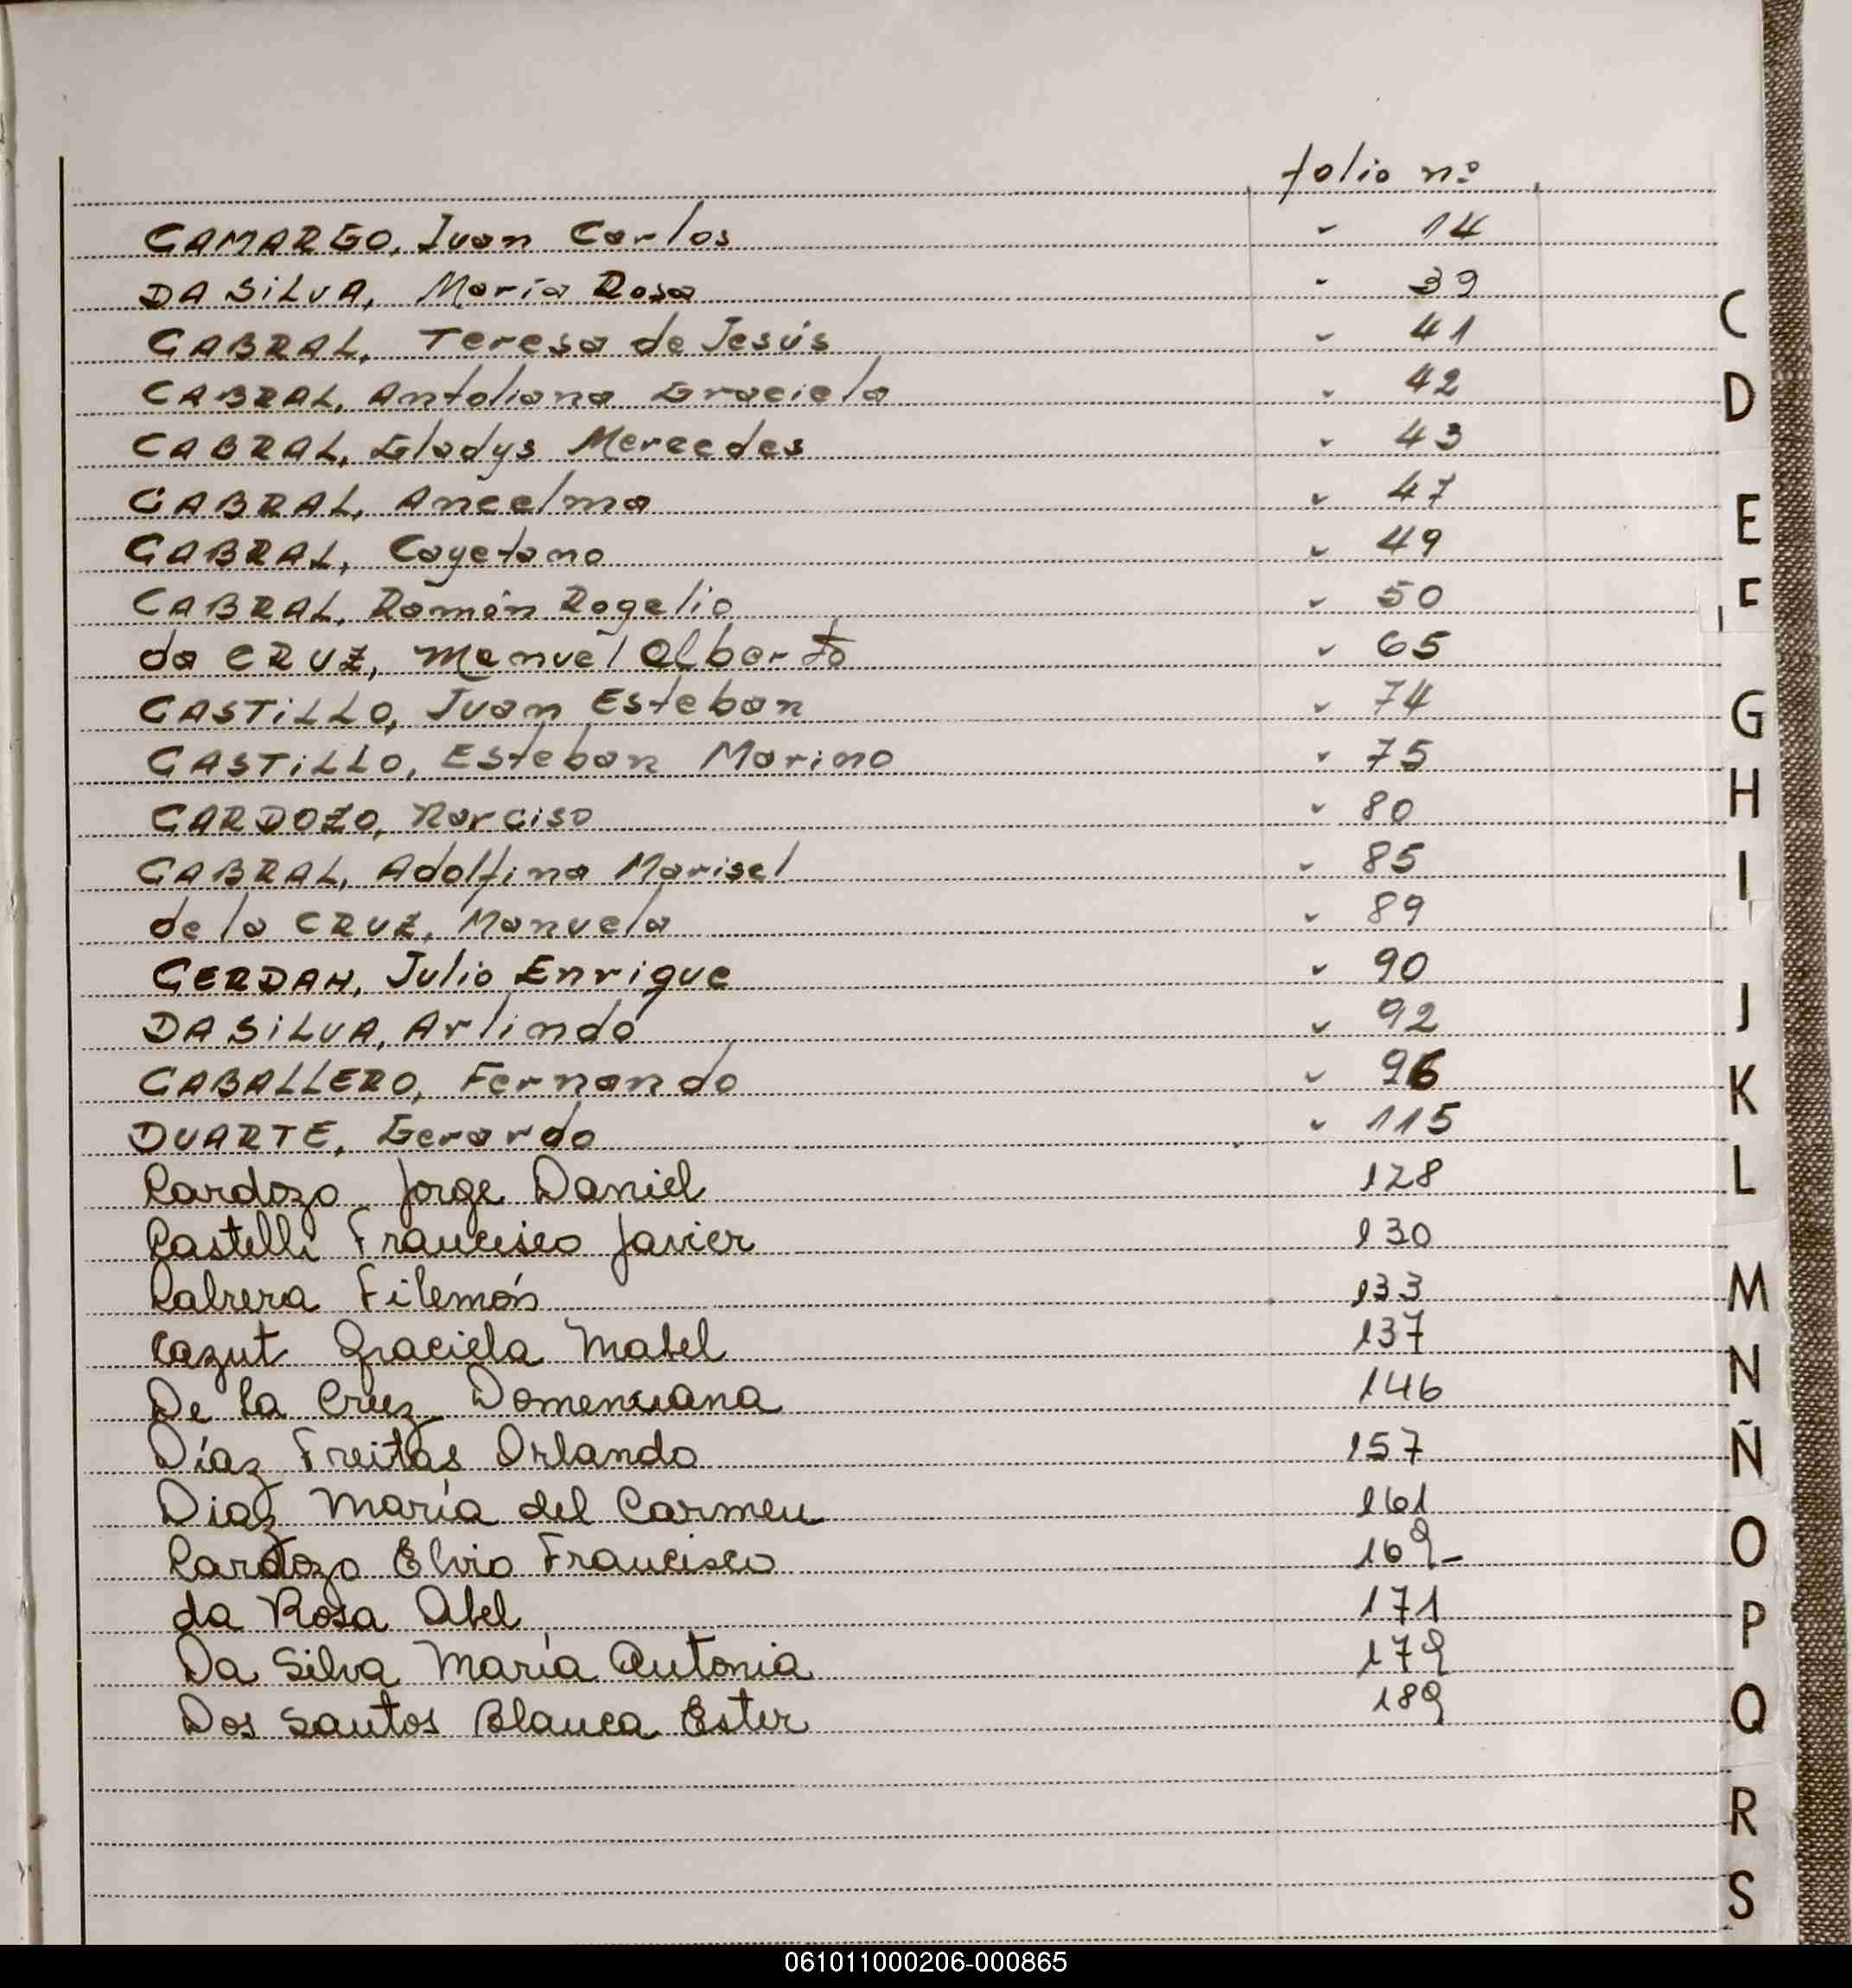 folio nº
CAMARGO, Juan Carlos " 14
DA SILVA, María Rosa " 39
CABRAL, Teresa de Jesús " 41
CABRAL, Antoliana Graciela " 42
CABRAL, Gladys Mercedes " 43
CABRAL, Ancelma " 47
CABRAL, Cayetano " 49
CABRAL, Ramón Rogelio " 50
da CRUZ, Manuel Alberto " 65
CASTILLO, Juan Esteban " 74
CASTILLO, Esteban Marino " 75
CARDOZO, Narciso " 80
CABRAL, Adolfina Marisel " 85
de la CRUZ, Manuela " 89
CERDAN, Julio Enrique " 90
DA SILVA, Arlindo " 92
CABALLERO, Fernando " 96
DUARTE, Gerardo " 115
Cardozo Jorge Daniel 128
Castelli Francisco Javier 130
Cabrera Filemón 133
Cazut Graciela Mabel 137
De la Cruz 146
Díaz Freitas Orlando 157
Diaz María del Carmen 161
Cardozo Elvio Francisco 169-
da Rosa Abel 171
Da Silva María Antonia 179
Dos Santos Blanca Ester 189
C
D
E
F
G
H
I
J
K
L
M
N
Ñ
O
P
Q
R
S
061011000206-000865